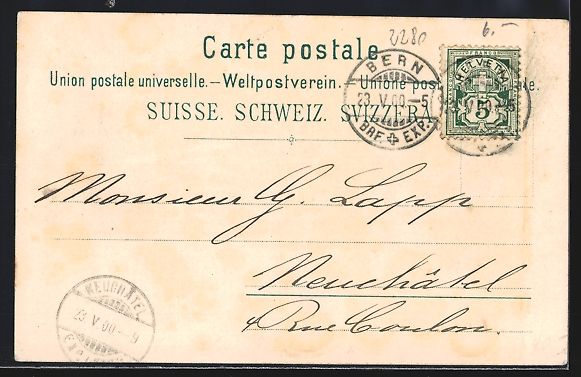 2280
6.—
Carte postale
Union postale universelle.—Weltpostverein.—Unione
SUISSE. SCHWEIZ. SVIZZERA
BERN
23. V. 00.—5
BRF. EXP.
FRANCO
HELVETIA
5
Monsieur G. Lapp
Neuchâtel
4 Rue Coulon.
NEUCHÂTEL
23 V 00